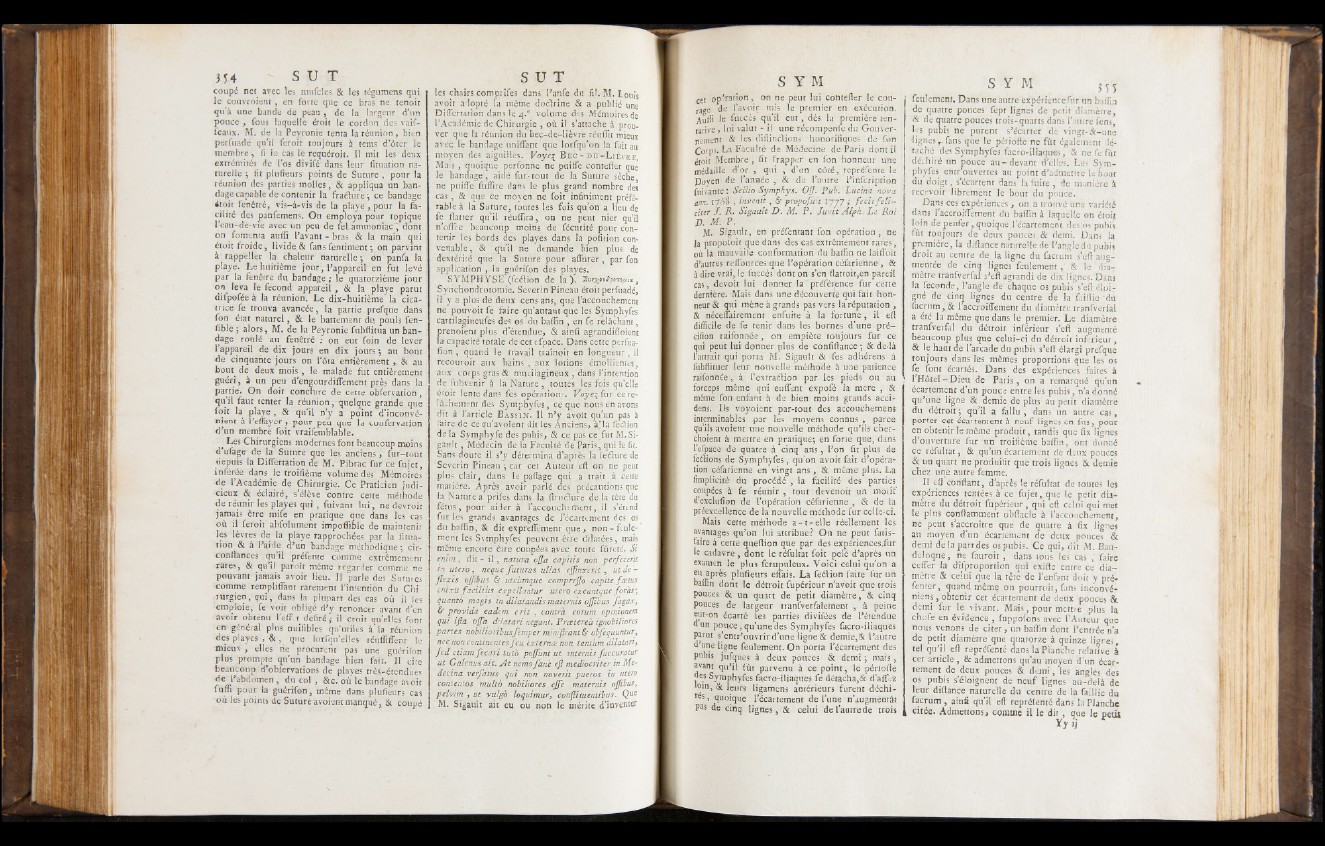 354 SUT
coupé net avec les muscles & les tégumens qui
le couvroient, en sorte que ce bras ne tenoit
qu'à une bande de peau, de la largeur d'un
pouce, sous laquelle étoit le cordon des vais-
seaux. M. de la Peyronie tenta la réunion, bien
persuadé qu'il seroit toujours à tems d'ôter le
membre, si le cas le requéroit. Il mit les deux
extrémités de l'os divisé dans leur situation na-
turelle; fit plusieurs points de Suture, pour la
réunion des parties molles, & appliqua un ban-
dage capable de contenir la fracture; ce bandage
étoit fenêtré, vis-à-vis de la playe, pour la fa-
cilité des pansemens. On employa pour topique
l'eau-de-vie avec un peu de sel ammoniac, dont
on fomenta aussi l'avant-bras & la main qui
étoit froide, livide & sans sentiment; on parvint
à rappeller la chaleur naturelle; on pansa la
playe. Le huitième jour, l'appareil en fut levé
par la fenêtre du bandage; le quatorzième jour
on leva le second appareil, & la playe parut
disposée à la réunion. Le dix-huitième la cica-
trice se trouva avancée, la partie presque dans
son état naturel, & le battement du pouls sen-
sible; alors, M. de la Peyronie substitua un ban-
dage roulé au fenêtré: on eut soin de lever
l'appareil de dix jours en dix jours; au bout
de cinquante jours on l'ôta entièrement, & au
bout de deux mois, le malade fut entièrement
guéri, à un peu d'engourdissement près dans la
partie. On doit conclure de cette observation,
qu'il faut tenter la réunion, quelque grande que
soit la playe, & qu'il n'y a point d'inconvé-
nient à l'essayer, pour peu que la conservation
d'un membre soit vraisemblable.
Les Chirurgiens modernes font beaucoup moins
d'usage de la Suture que les anciens, sur-tout
depuis la Dissertation de M. Pibrac sur ce sujet,
insérée dans le troisième volume des Mémoires
de l'Académie de Chirurgie. Ce Praticien judi-
cieux & éclairé, s'élève contre cette méthode
de réunir les playes qui, suivant lui, ne devroit
jamais être mise en pratique que dans les cas
où il seroit absolument impossible de maintenir
les lèvres de la playe rapprochées par la situa-
tion & à l'aide d'un bandage méthodique; cir-
constances qu'il présente comme extrêmement
rares, & qu'il paroît même regarder comme ne
pouvant jamais avoir lieu. Il parle des Sutures
comme remplissant rarement l'intention du Chi-
rurgien, qui, dans la plupart des cas où il les
emploie, se voit obligé d'y renoncer avant d'en
avoir obtenu l'eff.t desiré; il croit qu'elles sont
en général plus nuisibles qu'utiles à la réunion
des playes, &, que lorsqu'elles réussissent le
mieux, elles ne procurent pas une guérison
plus prompte qu'un bandage bien fait. Il cite
beaucoup d'observations de playes très-étendues
de l'abdomen, du col, &c. où le bandage avoit
suffi pour la guérison, même dans plusieurs cas
où les points de Suture avoient manqué, & coupé
SUT
les chairs comprises dans l'anse du fil. M. Louis
avoit adopté la même doctrine & a publié une
Dissertation dans le 4.e volume des Mémoires de
l'Académie de Chirurgie, où il s'attache à prou-
ver que la réunion du bec-de-lièvre réussit mieux
avec le bandage unissant que lorsqu'on la fait au
moyen des aiguilles. Voyez BEC-DE-LIEVRE.
Mais, quoique personne ne puisse contester que
le bandage, aidé sur-tout de la Suture sèche,
ne puisse suffire dans le plus grand nombre des
cas, & que ce moyen ne soit infiniment préfé-
rable à la Suture, toutes les fois qu'on a lieu de
se flatter qu'il réussira, on ne peut nier qu'il
n'offre beaucoup moins de sécurité pour con-
tenir les bords des playes dans la position con-
venable, & qu'il ne demande bien plus de
dextérité que la Suture pour assurer, par son
application, la guérison des playes.
SYMPHYSE (section de la).
Synchondrotomie. Severin Pineau étoit persuadé,
il y a plus de deux cens ans, que l'accouchement
ne pouvoit se faire qu'autant que les Symphyses
cartilagineuses des os du bassin, en se relâchant,
prenoient plus d'étendue, & ainsi agrandissoient
la capacité totale de cet espace. Dans cette persua-
sion, quand le travail traînoit en longueur, il
recouroit aux bains, aux lotions émollientes,
aux corps gras & mucilagineux, dans l'intention
de subvenir à la Nature, toutes les fois qu'elle
étoit lente dans ses opérations. Voyez sur ce re-
lâchement des Symphyses, ce que nous en avons
dit à l'article BASSIN. Il n'y avoit qu'un pas à
faire de ce qu'avoient dit les Anciens, à la section
de la Symphyse des pubis, & ce pas ce fut M. Si-
gault, Médecin de la Faculté de Paris, qui le fit.
Sans doute il s'y détermina d'après la lecture de
Severin Pineau; car cet Auteur est on ne peut
plus clair, dans le passage qui a trait à cette
matière. Après avoir parlé des précautions que
la Nature a prises dans la structure de la tête du
fétus, pour aider à l'accouchement, il s'étend
sur les grands avantages de l'écartement des os
du bassin, & dit expressément que, non-seule-
ment les Symphyses peuvent être dilatées, mais
même encore être coupées avec toute sûreté. Si
enim, dit-il, natura ossa capitis non perfecerit
in utero, neque suturas ullas effinxerit, ut de-
flexis ossibus & utcumque compresso capite fœtus
enixu facilius expellatur utero exeatque foràs;
quanto magis in dilatandis maternis ossibus sagax,
& provida eadem erit, contrà eorum opinionem
qui ipsa ossa dilatari negant. Prætereà ignobiliores
partes nobilioribus semper ministrant & obsequuntur,
nec non continentes seu externæ non tantùm dilatari,
sed etiam secari tutò possunt ut internis succuratur
ut Galenus ait. At nemo sanè est mediocriter in Me-
dicina versatus qui non noverit pueros in utero
contentos multò nobiliores esse maternis ossibus,
pelvim, ut vulgò loquimur, constituentibus. Que
M. Sigault ait eu ou non le mérite d'inventer
SYM
cet opération, on ne peut lui contester le cou-
rage de l'avoir mis le premier en exécution.
Aussi le succès qu'il eut, dès la première ten-
tative, lui valut-il une récompense du Gouver-
nement & les distinctions honorifiques de son
Corps. La Faculté de Médecine de Paris dont il
étoit Membre, fit frapper en son honneur une
médaille d'or, qui, d'un côté, représente le
Doyen de l'année, & de l'autre l'inscription
suivante: Sectio Symphys. Oss. Pub. Lucina nova
an. 1768, invenit, & proposuit 1777; fecit feli-
citer J. R. Sigault D. M. P. Juvit Alph. Le Roi
D. M. P.
M. Sigault, en présentant son opération, ne
la proposoit que dans des cas extrêmement rares,
où la mauvaise conformation du bassin ne laissoit
d'autres ressources que l'opération césarienne, &
à dire vrai, le succès dont on s'en flattoit, en pareil
cas, devoit lui donner la préférence sur cette
dernière. Mais dans une découverte qui fait hon-
neur & qui mène à grands pas vers la réputation,
& nécessairement ensuite à la fortune, il est
difficile de se tenir dans les bornes d'une pré-
cision raisonnée, on empiète toujours sur ce
qui peut lui donner plus de consistance; & de-là
l'attrait qui porta M. Sigault & ses adhérens à
substituer leur nouvelle méthode à une patience
raisonnée, à l'extraction par les pieds ou au
forceps même qui eussent exposé la mere, &
même son enfant à de bien moins grands acci-
dens. Ils voyoient par-tout des accouchemens
interminables par les moyens connus, parce
qu'ils avoient une nouvelle méthode qu'ils cher-
choient à mettre en pratique; en sorte que, dans
l'espace de quatre à cinq ans, l'on fit plus de
sections de Symphyses, qu'on avoit fait d'opéra-
tion césarienne en vingt ans, & même plus. La
simplicité du procédé, la facilité des parties
coupées à se réunir, tout devenoit un motif
d'exclusion de l'opération césarienne, & de la
préexcellence de la nouvelle méthode sur celle-ci.
Mais cette méthode a-t-elle réellement les
avantages qu'on lui attribue? On ne peut satis-
faire à cette question que par des expériences sur
le cadavre, dont le résultat soit pesé d'après un
examen le plus scrupuleux. Voici celui qu'on a
eu après plusieurs essais. La section faite sur un
bassin dont le détroit supérieur n'avoit que trois
pouces & un quart de petit diamètre, & cinq
pouces de largeur transversalement, à peine
eut-on écarté les parties divisées de l'étendue
d'un pouce, qu'une des Symphyses sacro-iliaques
parut s'entr'ouvrir d'une ligne & demie, & l'autre
d'une ligne seulement. On porta l'écartement des
pubis jusques à deux pouces & demi; mais,
avant qu'il fût parvenu à ce point, le périoste
des Symphyses sacro-iliaques se détacha, & d'assez
loin, & leurs ligamens antérieurs furent déchi-
rés, quoique l'écartement de l'une n'augmentât
pas de cinq lignes, & celui de l'autre de trois
SYM 355
seulement. Dans une autre expérience sur un bassin
de quatre pouces sept lignes de petit diamètre,
& de quatre pouces trois-quarts dans l'autre sens,
les pubis ne purent s'écarter de vingt-&-une
lignes, sans que le périoste ne fût également dé-
taché des Symphyses sacro-iliaques, & ne se fût
déchiré un pouce au-devant d'elles. Les Sym-
physes entr'ouvertes au point d'admettre le bout
du doigt, s'écartent dans la suite, de manière à
recevoir librement le bout du pouce.
Dans ces expériences, on a trouvé une variété
dans l'accroissement du bassin à laquelle on étoit
loin de penser, quoique l'écartement des os pubis
fût toujours de deux pouces & demi. Dans la
première, la distance naturelle de l'angle du pubis
droit au centre de la ligne du sacrum s'est aug-
mentée de cinq lignes seulement, & le dia-
mètre transversal s'est agrandi de dix lignes. Dans
la seconde, l'angle de chaque os pubis s'est éloi-
gné de cinq lignes du centre de la saillie du
sacrum, & l'accroissement du diamètre transversal
a été la même que dans le premier. Le diamètre
transversal du détroit inférieur s'est augmenté
beaucoup plus que celui-ci du détroit inférieur,
& le haut de l'arcade du pubis s'est élargi presque
toujours dans les mêmes proportions que les os
se sont écartés. Dans des expériences faites à
l'Hôtel-Dieu de Paris, on a remarqué qu'un
écartement d'un pouce entre les pubis, n'a donné
qu'une ligne & demie de plus au petit diamètre
du détroit; qu'il a fallu, dans un autre cas,
porter cet écartement à neuf lignes en sus, pour
en obtenir le même produit, tandis que six lignes
d'ouverture sur un troisième bassin, ont donné
ce résultat, & qu'un écartement de deux pouces
& un quart ne produisit que trois lignes & demie
chez une autre femme.
Il est constant, d'après le résultat de toutes les
expériences tentées à ce sujet, que le petit dia-
mètre du détroit supérieur, qui est celui qui met
le plus constamment obstacle à l'accouchement,
ne peut s'accroître que de quatre à six lignes
au moyen d'un écartement de deux pouces &
demi de la part des os pubis. Ce qui, dit M. Bau-
delogne, ne sauroit, dans tous les cas, faire
cesser la disproportion qui existe entre ce dia-
mètre & celui que la tête de l'enfant doit y pré-
senter, quand même on pourroit, sans inconvé-
niens, obtenir cet écartement de deux pouces &
demi sur le vivant. Mais, pour mettre plus la
chose en évidence, supposons avec l'Auteur que
nous venons de citer, un bassin dont l'entrée n'a
de petit diamètre que quatorze à quinze lignes,
tel qu'il est représenté dans la Planche relative à
cet article, & admettons qu'au moyen d'un écar-
tement de deux pouces & demi, les angles des
os pubis s'éloignent de neuf lignes au-delà de
leur distance naturelle du centre de la saillie du
sacrum, ainsi qu'il est représenté dans la Planche
citée. Admettons, comme il le dit, que le petit
Yy ij